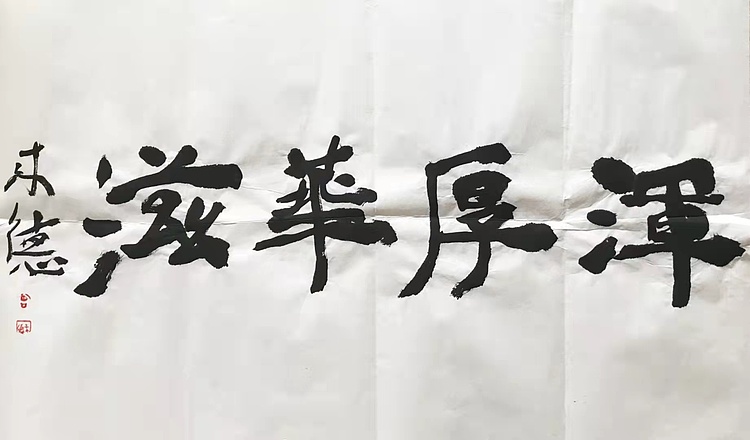 渾厚華滋
来德